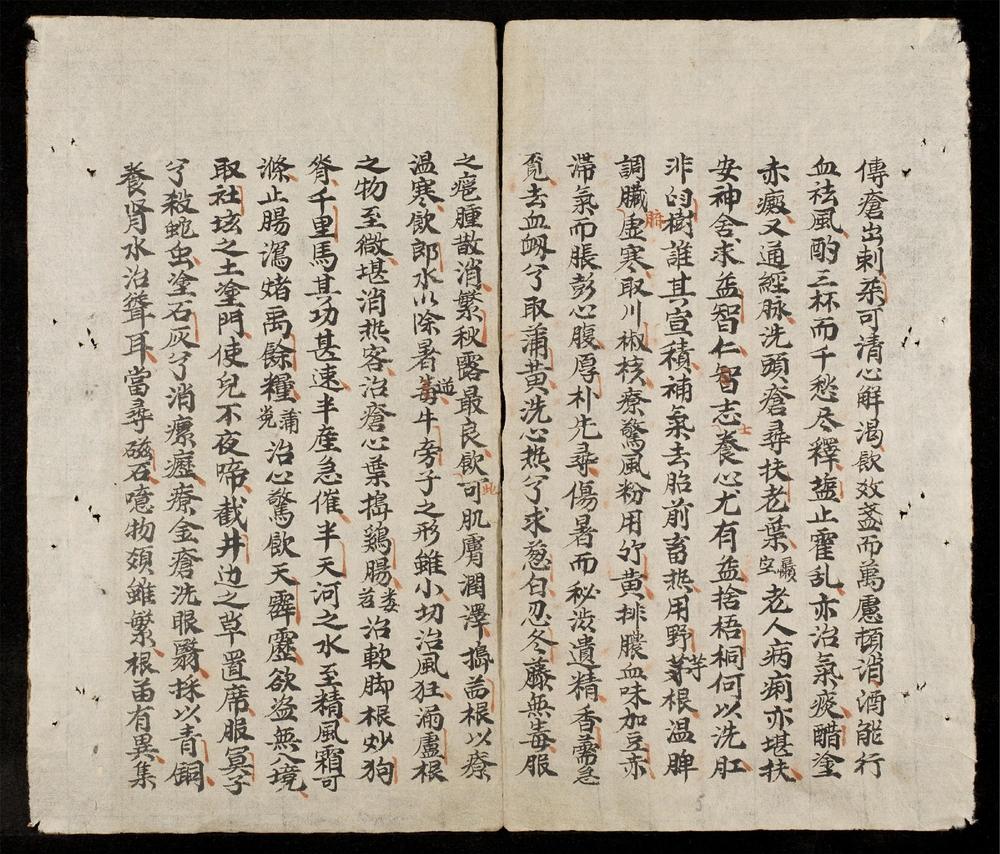 傳瘡出刺茶可清心解渴飲效盞而萬慮頓消酒能行
血袪風酌三杯而千愁尽釋塩止霍乱亦治氣痰醋塗
赤癜又通經脉洗頭瘡尋扶老葉老人病痢亦堪扶
安神舍求益智仁智志養心尤有益捨梧桐何以洗肛
非樹誰其宣積補氣去胎前畜热用野芋根温脾
調臟虛寒取川椒核療驚風粉用竹黄排膿血味加豆赤
滞氣而脹彭心腹厚朴先尋傷暑而秘澁遺精香薷急
覔去血衂兮取蒲黄洗心热兮求葱白忍冬藤無毒服
之瘡腫散消繁秋露最良飲可肌膚潤澤搗苗根以療
温寒飲郎水以除暑牛旁子之形雖小切治風狂漏盧根
之物至微堪消热客治瘡心葉搗鷄腸治軟脚根炒狗
脊千里馬其功甚速半産急催半天河之水至精風霜可
滌止腸瀉媎禹餘糧治心驚飲天霹靂欲盗無入境
取社坛之土塗門使兒不夜啼截井边之草置席服寞子
兮殺蛇虫塗石灰兮消瘰癧療金瘡洗眼翳採以青銅
養肾水治聾耳當尋磁石噫物類雖繁根苗有異集